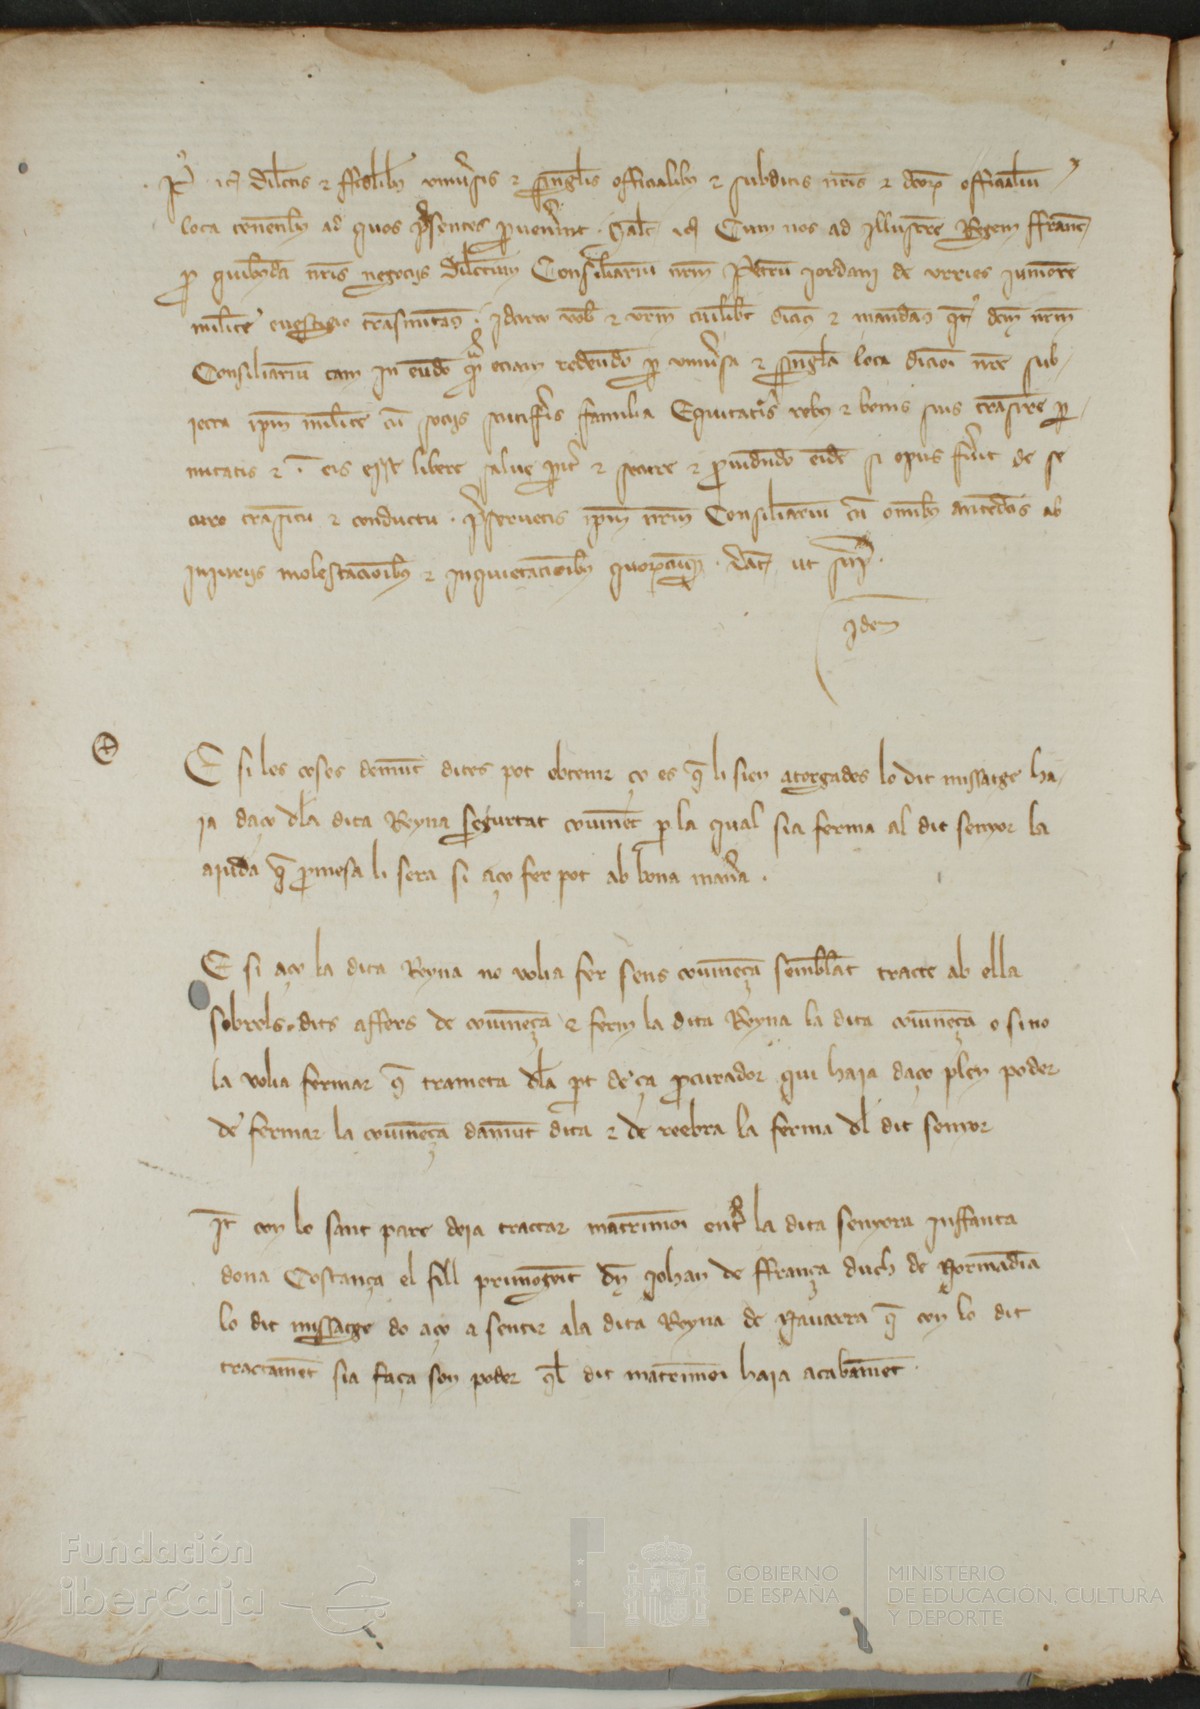 P. etc. dilectis et fidelibus universis et singulis officialibus et subditis nostris et eorum officialium
loca tenentibus ad quos presentes pervenerint. Salutem etc. Cum nos ad Illustrem Regem ffrancie
pro quibusdam nostris negociis dilectum Consiliarium nostrum Petrum Jordani de Urries Juniorem
militem e vestigio transmittamus. Idcirco vobis et vestrum cuilibet dicimus et mandamus quatenus dictum nostrum
Consiliarium tam in eundo quam eciam redeundo per universa et singula loca dicioni nostre sub-
iecta ipsum militem cum sociis scutiferis familia Equitaturis rebus et bonis suis transire per-
mittatis et eis libere salve pariter et secure et providendo eidem si opus fuerit de se
curo transitu et conductu. preservetis ipsum nostrum Consiliarium cum omnibus antedictis ab
injuriis molestacionibus et inquietacionibus quorumcumque. Datum ut supra.
Idem
E si les coses demunt dites pot obtenir ço es que li sien atorgades lo dit missatge ha-
ia daço dela dita Reyna segurtat covinent per la qual sia ferma al dit senyor la
aiuda que promesa li sera si aço fer pot ab bona manera.
E si aço la dita Reyna no volia fer sens covinença semblant tracte ab ella
sobrels dits affers de covinença et ferm la dita Reyna la dita covinença o si no
la volia fermar que trameta dela part deça procurador qui haia daço pleyn poder
de fermar la covinença damunt dita et de reebra la ferma del dit senyor
Item con lo sant pare deia tractar matrimoni entre la dita senyora Inffanta
dona Costança el fill primogenit den Johan de ffrança duch de Normandia
lo dit missatge do aço a sentir ala dita Reyna de Navarra que con lo dit
tractament sia faça son poder quel dit matrimoni haia acabament.
Fundación
iberCaja
GOBIERNO
DE ESPAÑA
MINISTERIO
DE EDUCACIÓN, CULTURA
Y DEPORTE